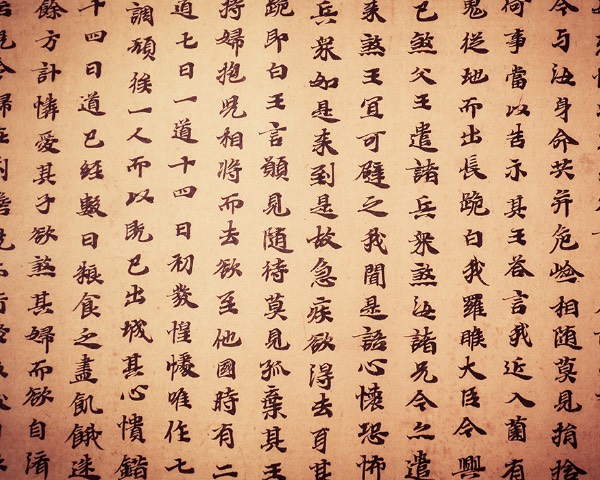 今与汝身命共并危嶮相随莫見捐捨
何事當以告示其王荅言我近入薗有
鬼從地而出長跪白我羅睺大臣今興
已煞父王遣諸兵衆煞汝諸兄今亦遣
来煞王冝可避之我聞是語心懷恐怖
兵衆如是来到是故急疾欲得去耳其
跪即白王言願見随侍莫見孤棄其王
持婦抱兒相将而去欲至他國時有二
道七日一道十四日初發惶懅唯作七
調頓俟一人而以既已出城其心憒錯
十四日道已經數日粮食乏盡飢餓迷
餘方計憐愛其子欲煞其婦而欲自濟